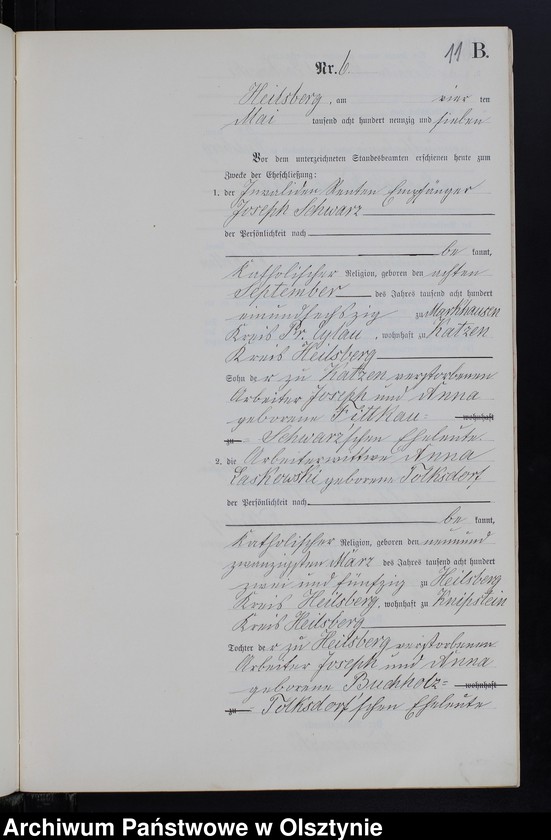 11 B.
Nr. 6.
Heilsberg, am vier ten
Mai tausend acht hundert neunzig und sieben
Vor dem unterzeichneten Standesbeamten erschienen heute zum
Zwecke der Eheschließung:
1. der Invaliden Renten Empfänger
Joseph Schwarz
der Persönlichkeit nach
be kannt,
Katholischer Religion, geboren den achten
September des Jahres tausend acht hundert
einundsechszig zu Markhausen
Kreis Pr. Eylau, wohnhaft zu Katzen
Kreis Heilsberg
Sohn der zu Katzen verstorbenen
Arbeiter Joseph und Anna
geborene Fittkau- wohnhaft
zu Schwarz'schen Eheleute.
2. die Arbeiterwittwe Anna
Laskowski geborene Tolksdorf
der Persönlichkeit nach
be kannt,
Katholischer Religion, geboren den neunund
zwanzigsten März des Jahres tausend acht hundert
zwei und fünfzig zu Heilsberg
Kreis Heilsberg, wohnhaft zu Knipstein
Kreis Heilsberg
Tochter der zu Heilsberg verstorbenen
Arbeiter Joseph und Anna
geborene Buchholz- wohnhaft
zu Tolksdorf'schen Eheleute
Archiwum Państwowe w Olsztynie